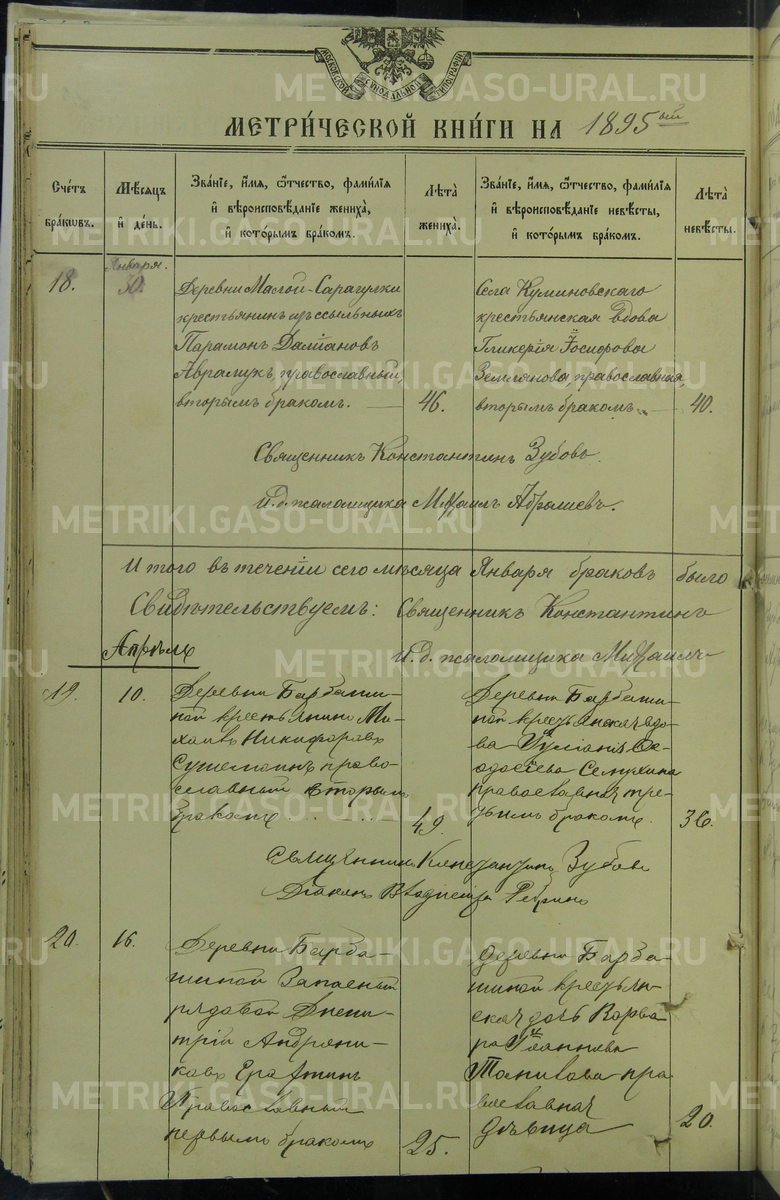 МОСКОВСКОЙ СѴНОДАЛЬНОЙ ТИПОГРАФІИ
МЕТРИЧЕСКОЙ КНИГИ НА 1895ый
Счетъ браковъ.
Мѣсяцъ и день.
Званіе, имя, отчество, фамилія и вѣроисповѣданіе жениха, и которымъ бракомъ.
Лѣта жениха.
Званіе, имя, отчество, фамилія и вѣроисповѣданіе невѣсты, и которымъ бракомъ.
Лѣта невѣсты.
18.
Января.
30.
Деревни Малой-Сарагулки
крестьянинъ изъ ссыльныхъ
Парамонъ Даміановъ
Аврамукъ, православный,
вторымъ бракомъ.
46.
Села Куминовскаго
крестьянская вдова
Гликерія Іосифова
Землянова, православная,
вторымъ бракомъ.
40.
Священникъ Константинъ Зубовъ.
И. д. псаломщика Михаилъ
Итого въ теченіи сего мѣсяца Января браковъ было
Свидѣтельствуемъ: Священникъ Константинъ
И. д. псаломщика Михаилъ
Апрѣль
19.
10.
Деревни Барбаши-
ной крестьянинъ Ми-
хаилъ Никифоровъ
право-
славный вторымъ
бракомъ
49.
Деревни Барбаши-
ной крестьянская вдо-
ва Іуліанія Ѳе-
одосіева Семухина
православная тре-
тьимъ бракомъ.
36.
Священникъ Константинъ Зубовъ
Діаконъ
20.
16.
Деревни Барба-
шиной Запасный
рядовой Дими-
трій Андрони-
ковъ
Православный
первымъ бракомъ
25.
Деревни Барба-
шиной крестьян-
ская дочь Варва-
ра Іоаннова
пра-
вославная
дѣвица
20.
METRIKI.GASO-URAL.RU